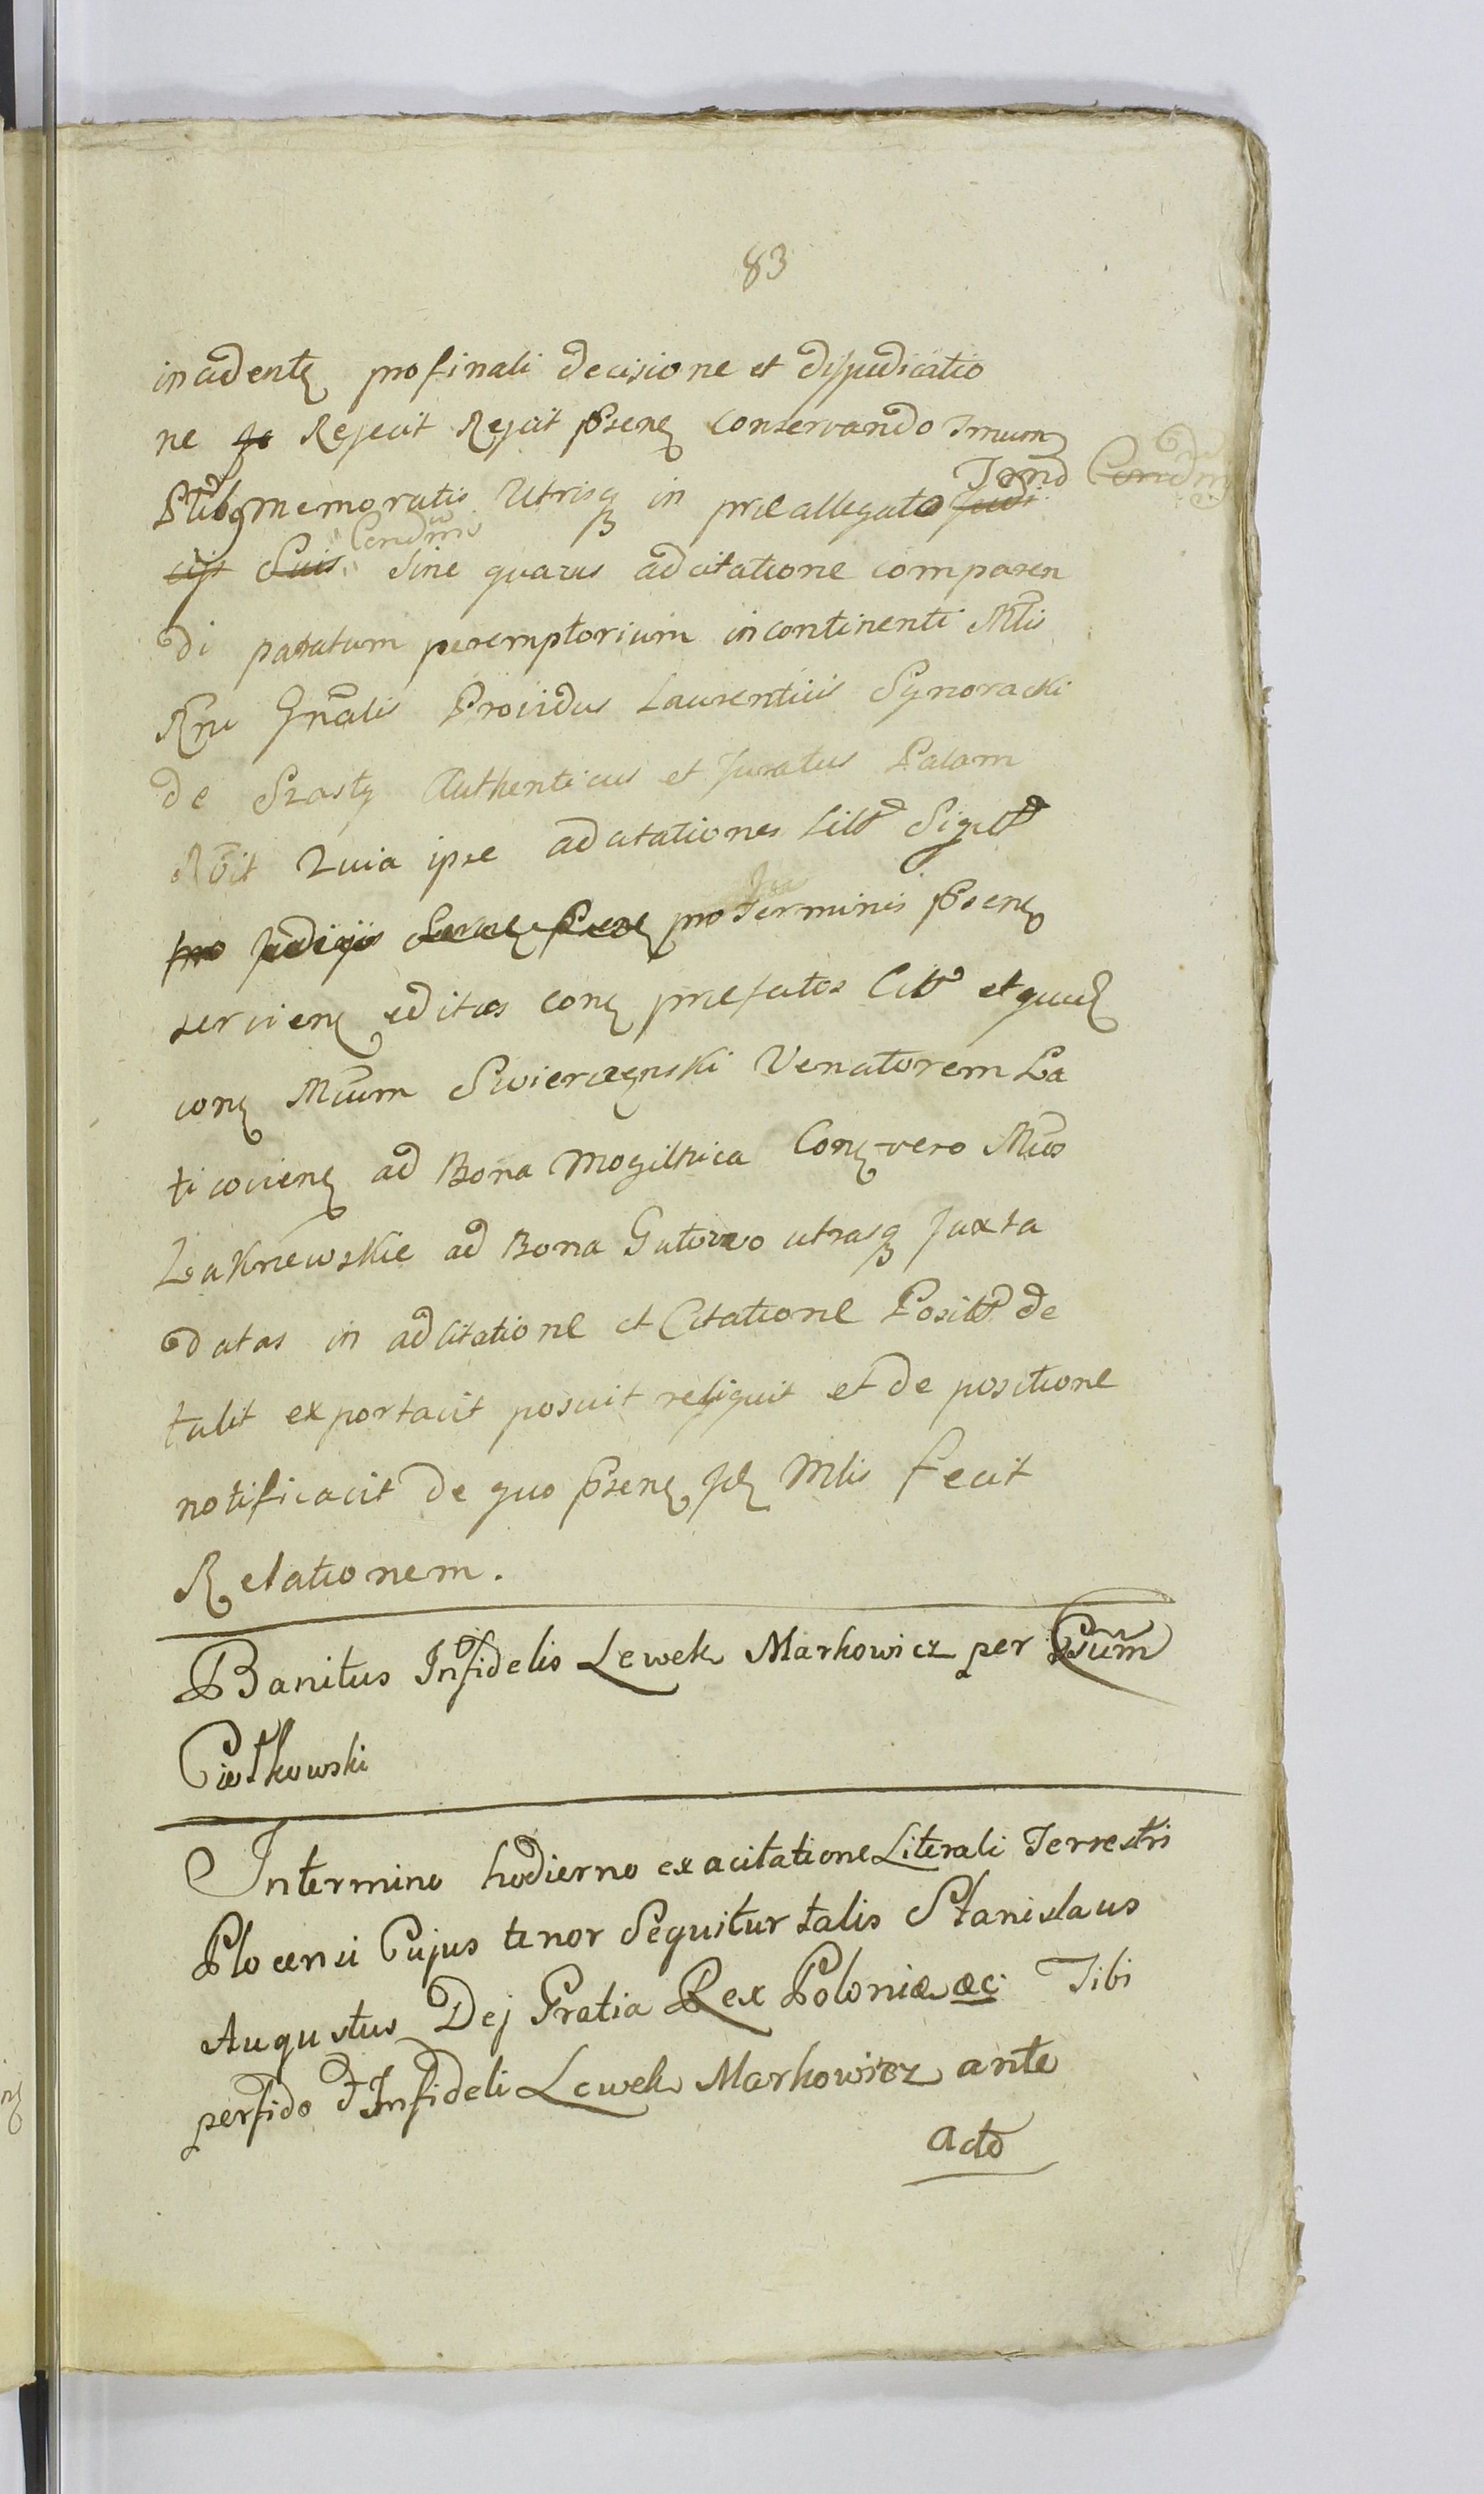 83
incidentē pro finali decisione et dijudicatio
ne Rejecit Rejcit pſsenē conservando Tmum
Ptibq memoratis Utrisq in præallegato Tmno
Condmu
Sine quavis adcitatione comparen
di paratum peremptorium incontinenti Mtis
Rni Gnalis Providus Laurentius Synoracki
de Szasty Authenticus et Juratus Palam
Rbit Quia ipse adcitationes Litt Sigill
pro Judicijs pro Terminis psenē
servienē editas conē præfatos Citt et quid
conē Mcum Swierczynski Venatorem La
ticovienē ad Bona Mogilnica Conē vero Mcos
Lakniewskie ad Bona Gutowo utrasq Juxta
datas in adcitatione et Citatione Posit de
tulit exportavit posuit reliquit et de positione
notificavit de quo psenē Jd Mtis fecit
Relationem.
Banitus Infidelis Lewek Markowicz per Gsum
Ciotkowski
In termino hodierno ex acitatione Literali Terrestri
Plocensi Cujus tenor Sequitur talis Stanislaus
Augustus Dej Gratia Rex Poloniæ æc: Tibi
perfido & Infideli Lewek Markowicz ante
acto